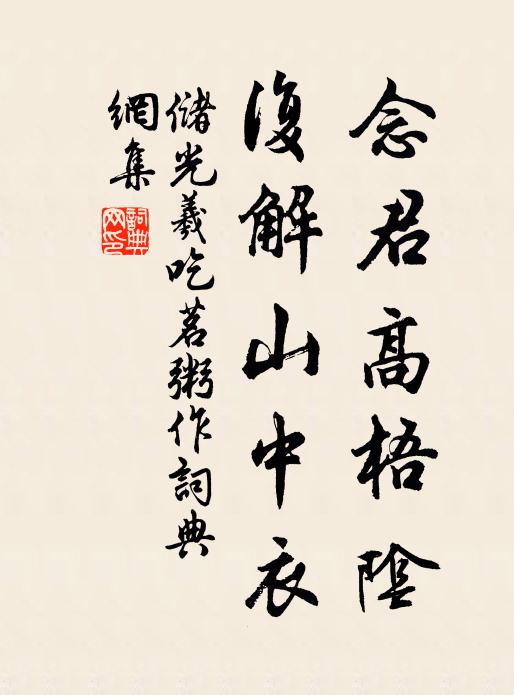 念君高梧陰
復解山中衣
儲光羲吃茗粥作詞典
網集
詞典網印